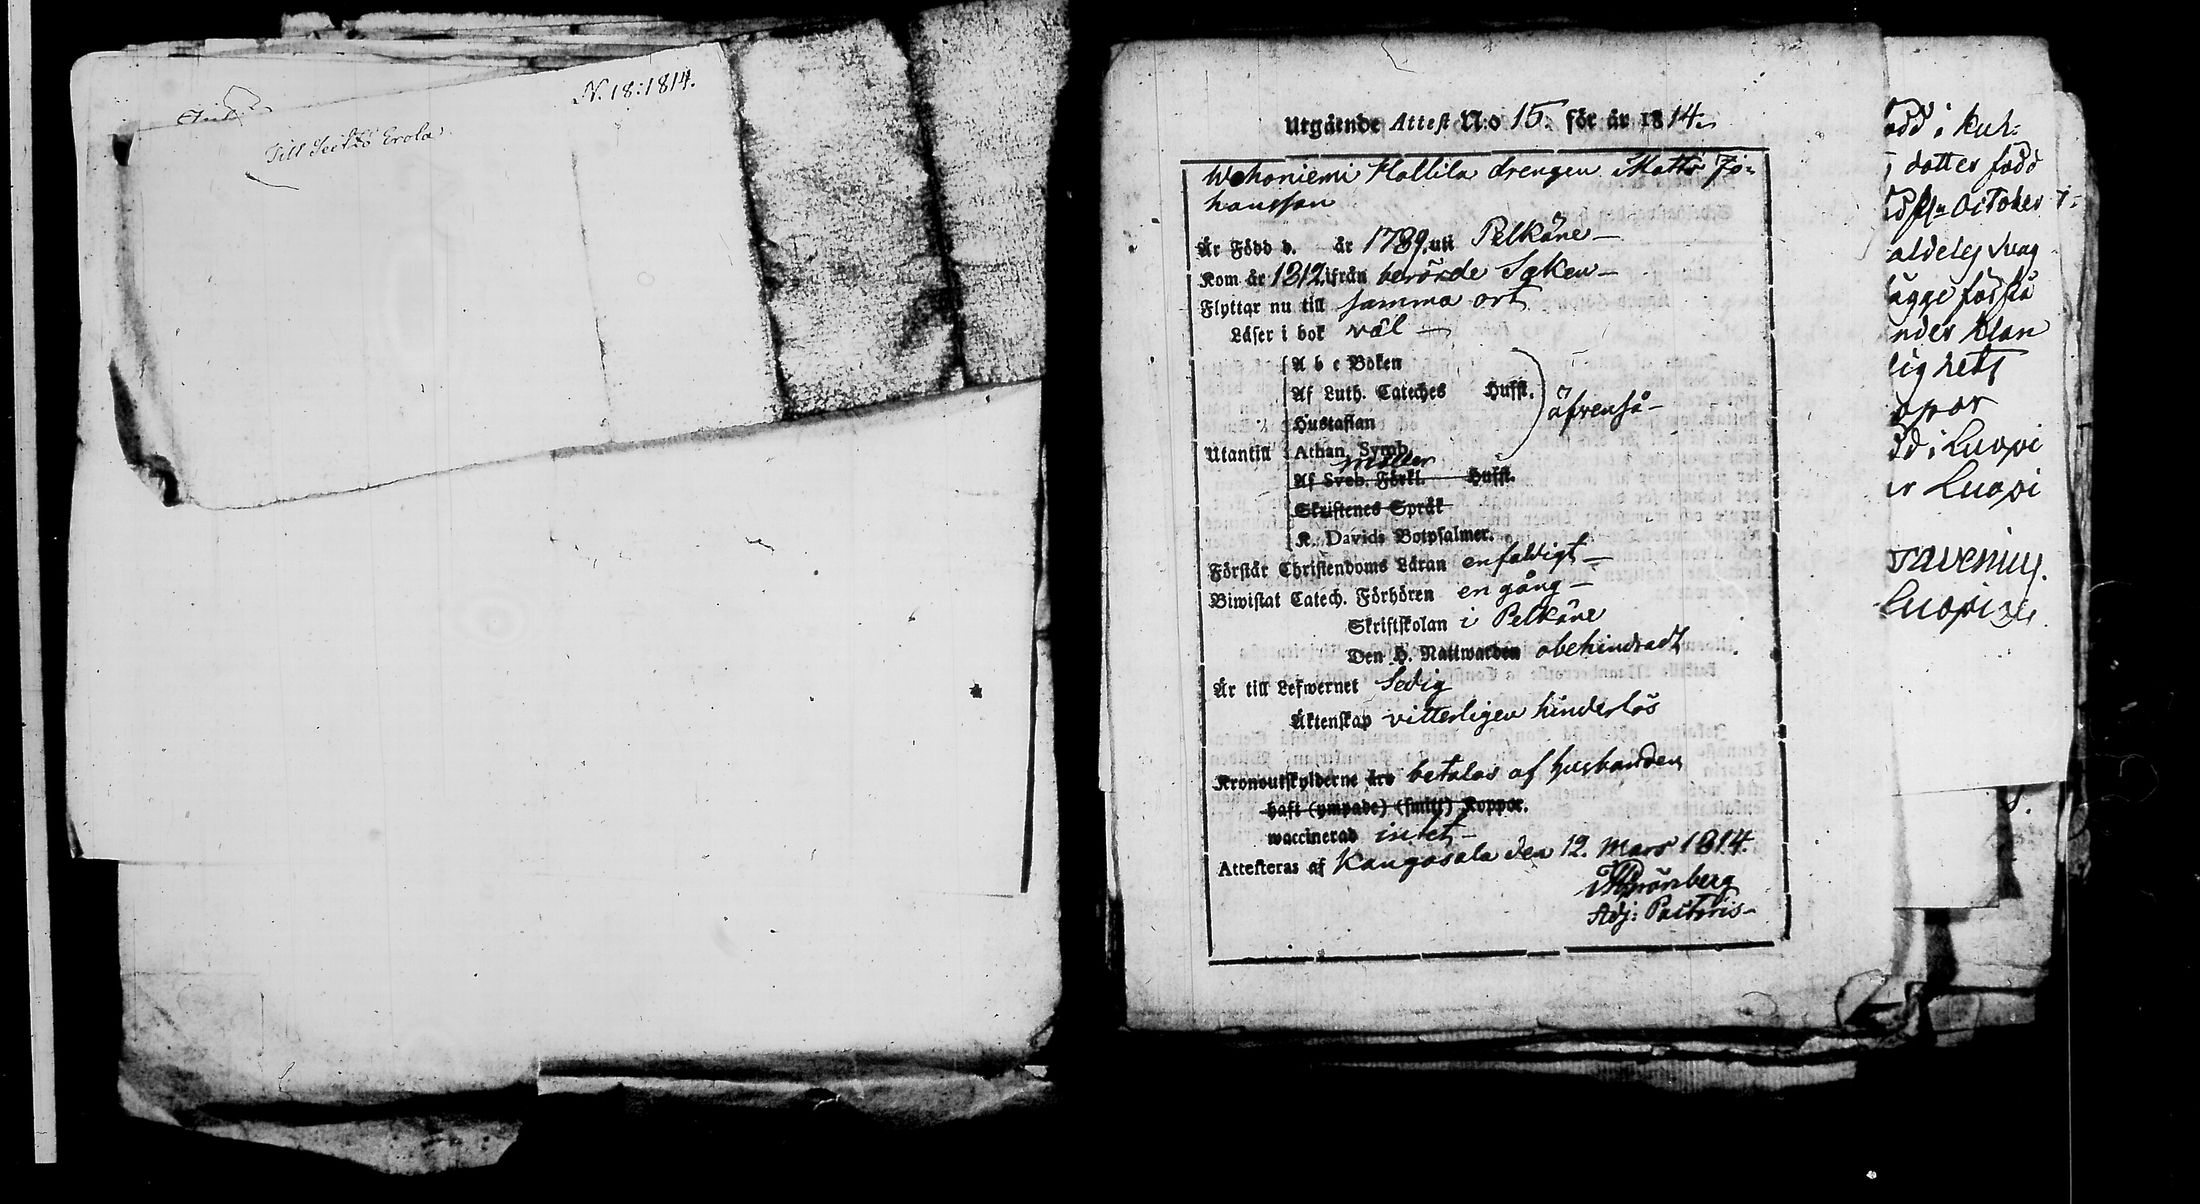 N. 18:1814.
Till Seitzö Erola
Utgående Attest N:o 15. för år 1814.
Wehoniemi Hallila drengen Matts Jo-
hansson
Är Född d. år 1789. uti Pelkäne
Kom år 1812. ifrån berörde Soken
Flyttar nu till samma ort
Läser i bok väl
A b c Boken
Af Luth. Cateches Hufst.
Hustaflan
äfvenså
Utantill Athan. Symb.
möller
Af Sveb. Förkl. Hufst.
Skriftenes Språk
K. Davids Botpsalmer.
Förstår Christendoms Läran enfaldigt
Biwistat Catech. Förhören en gång
Skriftskolan i Pelkäne
Den H. Nattwarden obehindradt
Är till Lefwernet Sedig
Äktenskap vitterligen hinderlös
Kronoutskylderne äro betalas af husbonden
haft (ympade) (smitt) Koppor.
waccinerad intet
Attesteras af Kangasala den 12. Mars 1814.
Grönberg
Adj: Pastoris
dotter född
October
aldeles svag
lighets
i Luopi
Luopi